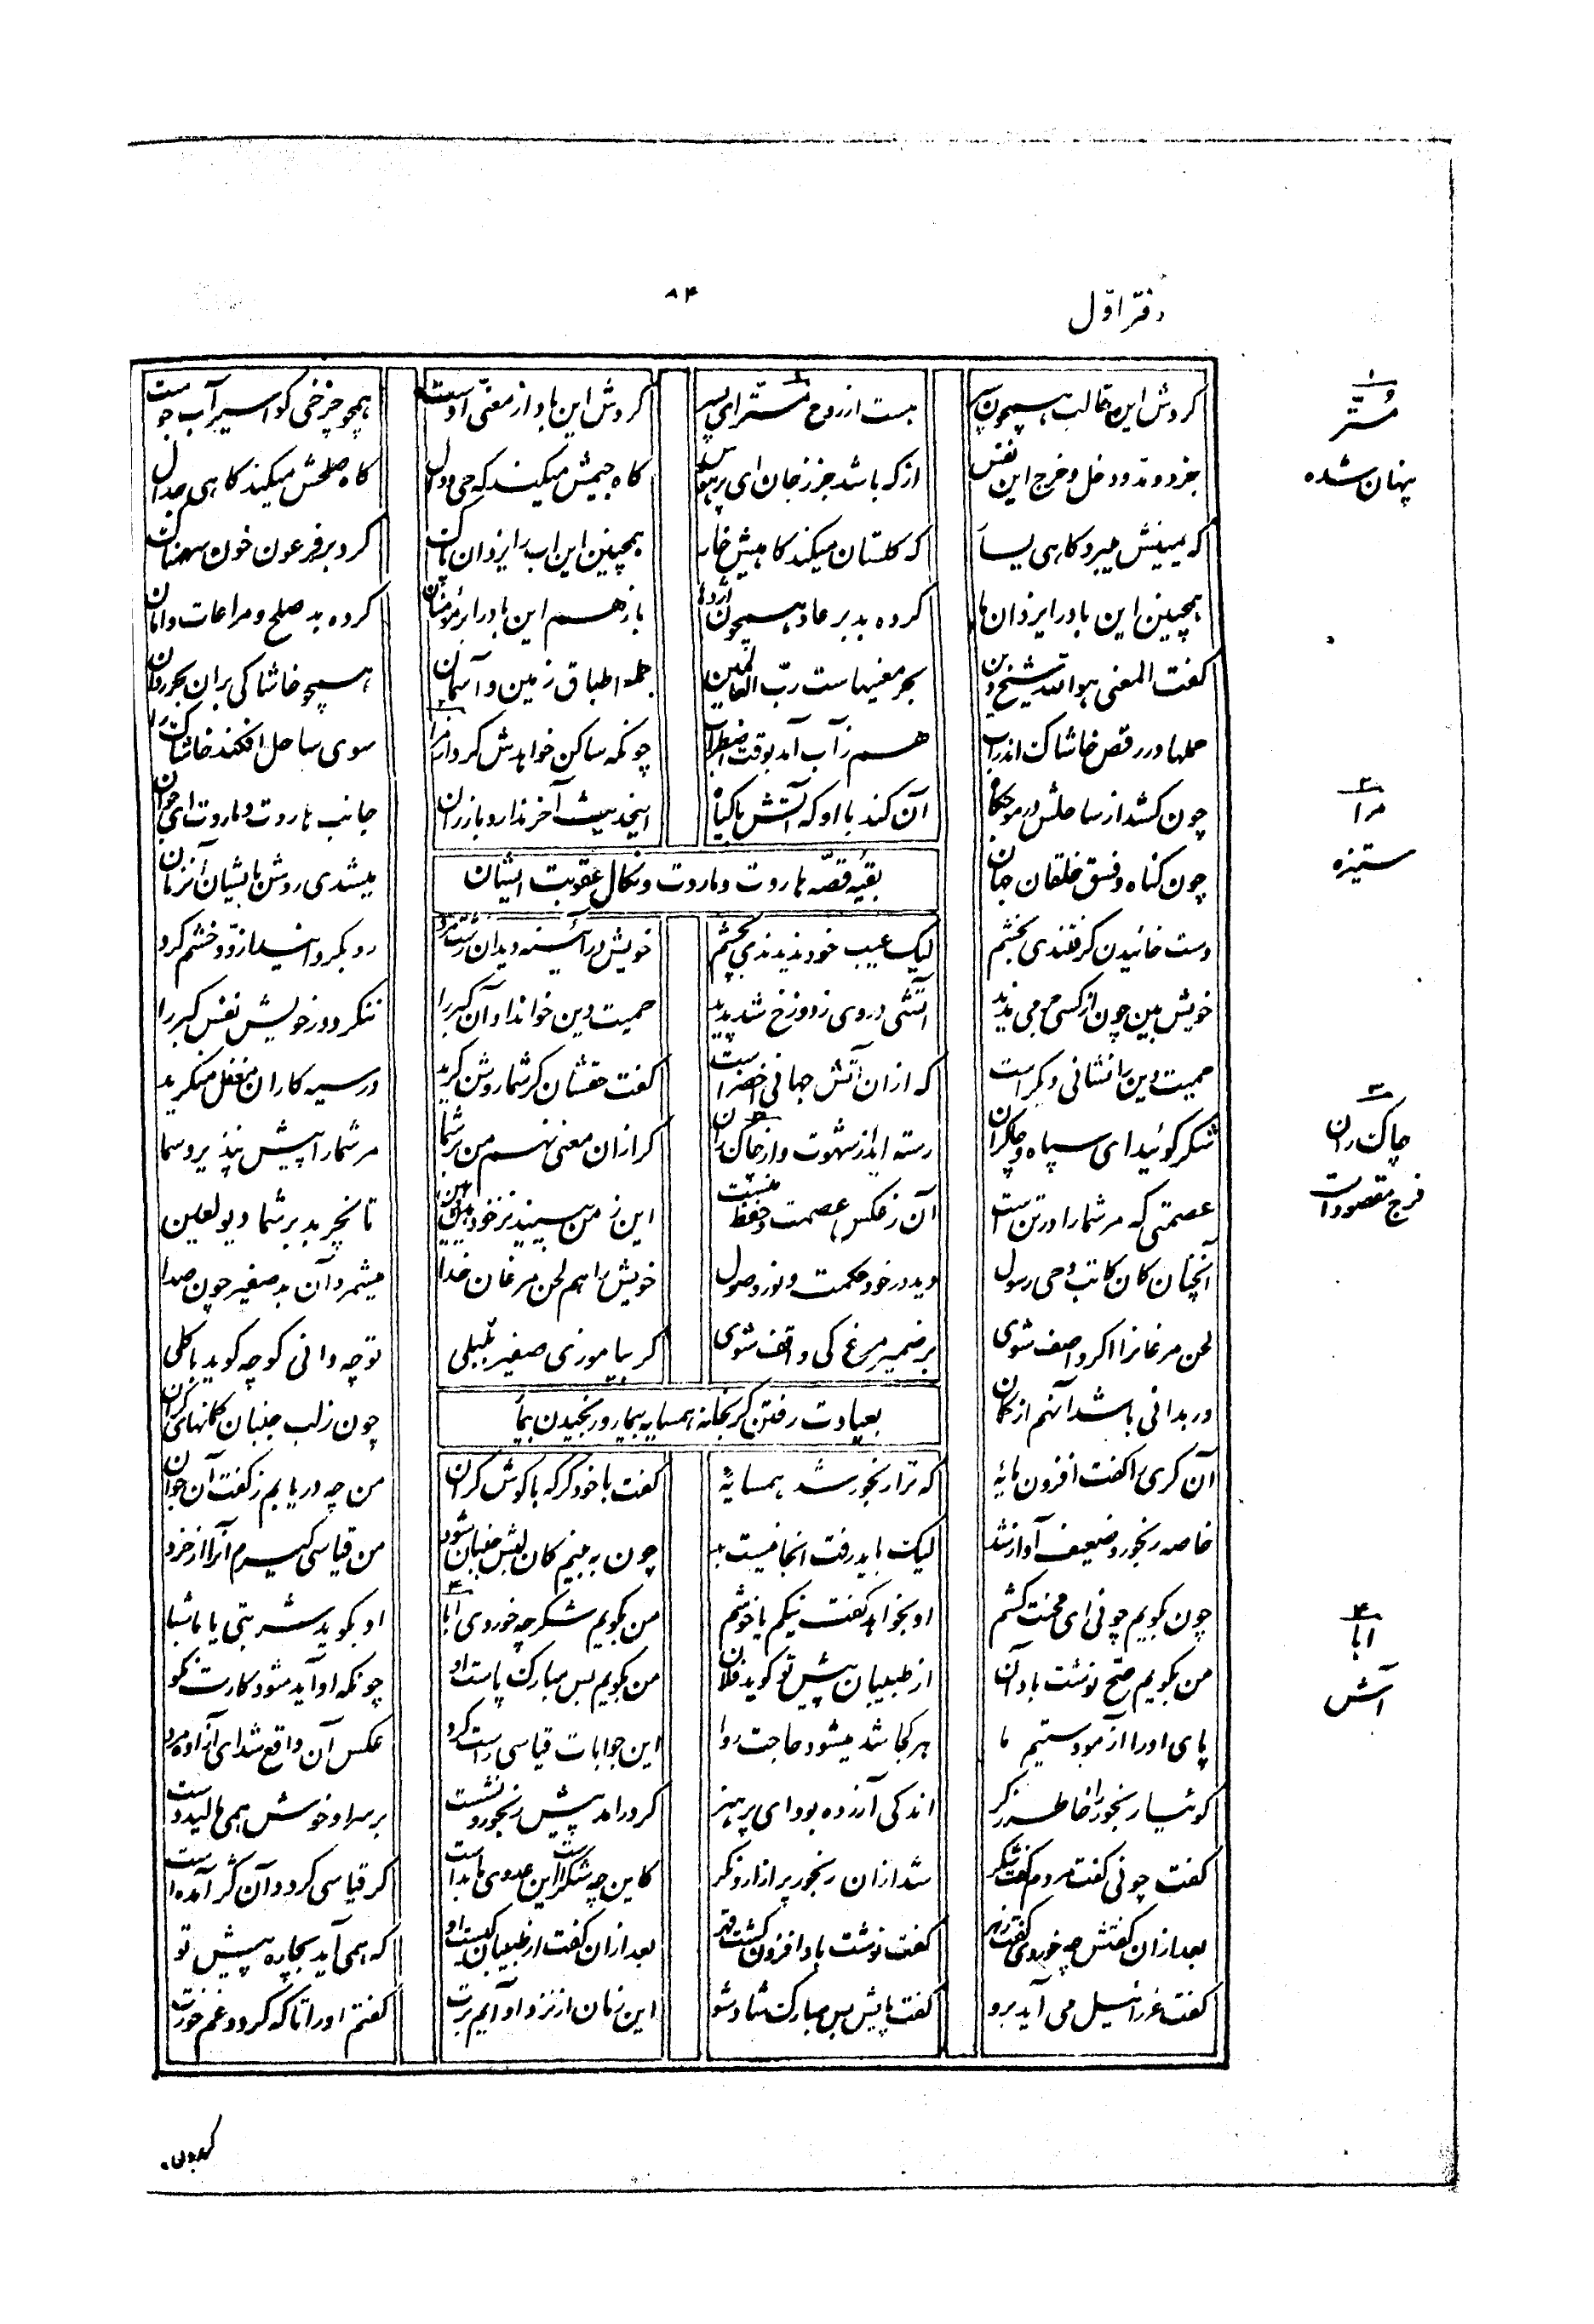 دفتر اوّل
۸۴
گردش این قالب همچون سپر هست از روح مستّر ای پسر گردش این باد از معنی اوست همچو چرخی کو اسیر آب جوست
جزر و مد و دخل و خرج این نفس از که باشد جز ز جان ای پرهوس گاه جیمش میکند گه حی و دال گاه صلحش میکند گاهی جدال
گه یمینش میبرد گاهی یسار گه گلستان میکند گاهیش خار همچنین این آب را یزدان پاک کرد بر فرعون خون سهمناک
همچنین این باد را یزدان ما کرده بد بر عاد همچون اژدها باز هم این باد را بر مؤمنان کرده بد صلح و مراعات و امان
گفت المعنی هو الله شیخ دین بحر معنیهاست ربّ العالمین جمله اطباق زمین و آسمان همچو خاشاکی بران بحر روان
حملها و رقص خاشاک اندر آب هم ز آب آمد بوقت اضطراب چونکه ساکن خواهدش کرد از مرا سوی ساحل افکند خاشاک را
چون کشد از ساحلش در موجگاه آن کند با او که آتش با گیاه این حدیث آخر ندارد باز ران جانب هاروت و ماروت ای جوان
بقیّه قصّه هاروت و ماروت و نکال عقوبت ایشان
چون گناه و فسق خلقان جهان میشدی روشن بایشان آنزمان
دست خائیدن گرفتندی بخشم لیک عیب خود ندیدندی بچشم خویش در آئینه دید آن زشت مرد رو بگردانید از او و خشم کرد
خویش بین چون از کسی جرمی بدید آتشی در وی ز دوزخ شد پدید حمیت دین خواند او آن کبر را ننگرد در خویش نفس کبر را
حمیت دین را نشانی دیگر است که از آن آتش جهانی اخضر است گفت حقشان گر شما روشن گرید در سیه کاران مغفل منگرید
شکر گوئید ای سپاه و چاکران رسته اید از شهوت و از چاک ران گر از آن معنی نهم من بر شما مر شما را پیش نپذیرد سما
عصمتی که مر شما را در تن است آن ز عکس عصمت و حفظ منست این ز من بینید نز خود هین و هین تا نچربد بر شما دیو لعین
آنچنان کان کاتب وحی رسول دید در خود حکمت و نور وصول خویش را هم لحن مرغان خدا میشمرد آن بد صفیر چون صدا
لحن مرغانرا اگر واصف شوی بر ضمیر مرغ کی واقف شوی گر بیاموزی صفیر بلبلی تو چه دانی کو چه گوید با گلی
ور بدانی باشد آنهم از گمان چون ز لب جنبان گمانهای کران
بعیادت رفتن کر بخانه همسایه بیمار و رنجیدن بیمار
آن کری را گفت افزون مایهٔ که ترا رنجور شد همسایهٔ گفت با خود کر که با گوش گران من چه دریابم ز گفت آن جوان
خاصه رنجور و ضعیف آواز شد لیک باید رفت آنجا نیست بد چون به بینم کان لبش جنبان شود من قیاسی گیرم آنرا از خرد
چون بگویم چونی ای محنت کشم او بخواهد گفت نیکم یا خوشم من بگویم شکر چه خوردی ابا او بگوید شربتی یا ماشبا
من بگویم صحّ نوشت باد آن از طبیبان پیش تو گوید فلان من بگویم بس مبارک پاست او چونکه او آید شود کارت نکو
پای او را آزمودستیم ما هر کجا شد میشود حاجت روا این جوابات قیاسی راست کرد عکس آن واقع شد ای آزاده مرد
گوئیا رنجور را خاطر ز کر اندکی آزرده بود ای پر هنر کر درآمد پیش رنجور و نشست بر سر او خوش همی مالید دست
گفت چونی گفت مردم گفت شکر شد از آن رنجور پر آزار و نکر کاین چه شکر است این عدوی ما بداست کر قیاسی کرد و آن کژ آمده است
بعد از آن گفتش چه خوردی گفت زهر گفت نوشت باد افزون گشت قهر بعد از آن گفت از طبیبان کیست او که همی آید بچاره پیش تو
گفت عزرائیل می آید برو گفت پایش بس مبارک شاد شو این زمان از نزد او آیم برت گفتم او را تا که گردد غمخورت
۱
مُستّر
پنهان شده
۲
مرا
ستیزه
۳
چاک ران
فرج مقصود است
۴
ابا
آش